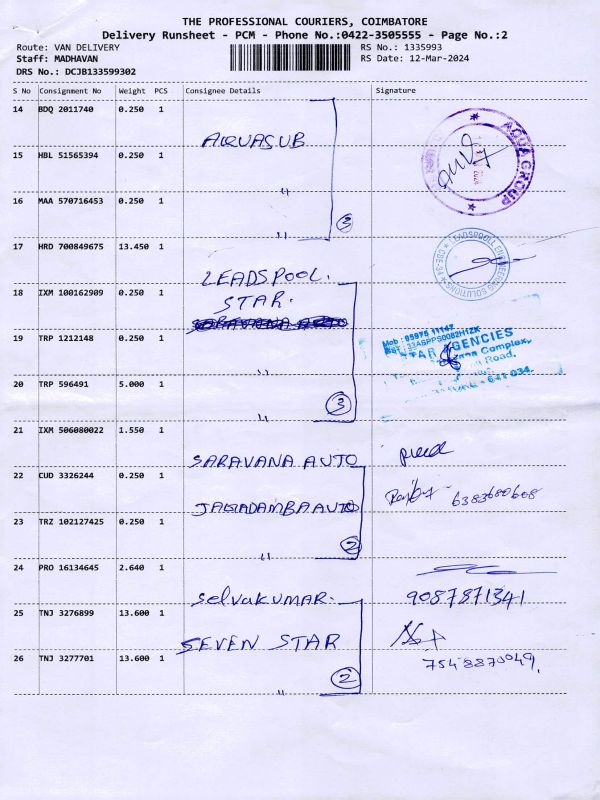 THE PROFESSIONAL COURIERS, COIMBATORE
Delivery Runsheet - PCM - Phone No.:0422-3505555 - Page No.:2
Route: VAN DELIVERY RS No.: 1335993
Staff: MADHAVAN RS Date: 12-Mar-2024
DRS No.: DCJB133599302
S No Consignment No Weight PCS Consignee Details Signature
14 BDQ 2011740 0.250 1 AQUASUB
AQUA GROUP
15 HBL 51565394 0.250 1 "
16 MAA 570716453 0.250 1 " 3
17 HRD 700849675 13.450 1 LEADSPOOL.
LEADSPOOL ENGINEERING SOLUTIONS
18 IXM 100162909 0.250 1 STAR.
SARAVANA AUTO
19 TRP 1212148 0.250 1 "
Mob: 95975 11147
33ASPPS0082H1ZK
STAR AGENCIES
Complex,
Road.
641 034.
20 TRP 596491 5.000 1 " 3
21 IXM 506080022 1.550 1 SARAVANA AUTO
22 CUD 3326244 0.250 1 JAGADAMBA AUTO 6383680608
23 TRZ 102127425 0.250 1 " 2
24 PRO 16134645 2.640 1 SelvaKUMAR. 9087871341
25 TNJ 3276899 13.600 1 SEVEN STAR
7548870049.
26 TNJ 3277701 13.600 1 " 2